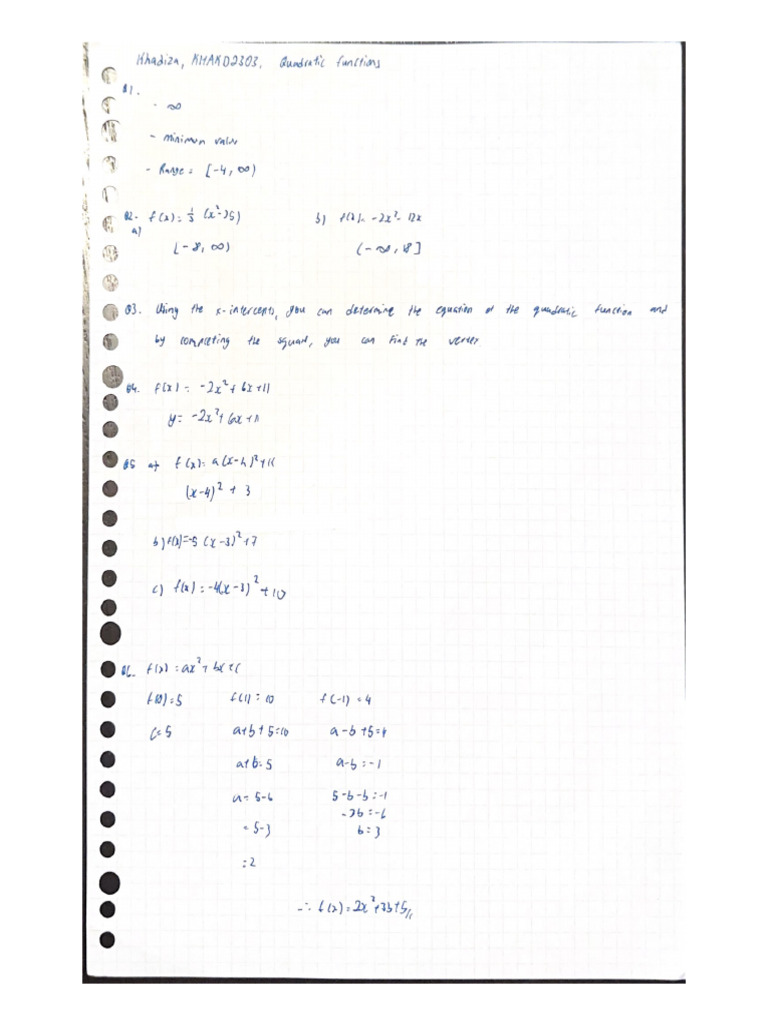 Khadiza, KHAKD2303, Quadratic Functions
Q1.
- ∞
- minimum value
- Range = [-4, ∞)
Q2- f(x) = 1/3 (x²-25) b) f(x) = -2x²- 12x
a)
[-8, ∞) (-∞, 18]
Q3. Using the x-intercepts, you can determine the equation of the quadratic function and
by completing the squad, you can find the vertex
Q4. f(x) = -2x²+6x+11
y = -2x²+6x+11
Q5 a) f(x) = a(x-h)²+k
(x-4)² + 3
b) f(x)=-5(x-3)²+7
c) f(x) = -4(x-3)²+10
Q6. f(x) = ax²+bx+c
f(0)=5 f(1) = 10 f(-1) = 4
C=5 a+b+5=10 a-b+5=4
a+b=5 a-b=-1
a= 5-b 5-b-b=-1
-2b=-6
= 5-3 b=3
=2
∴ f(x)=2x²+3b+5//